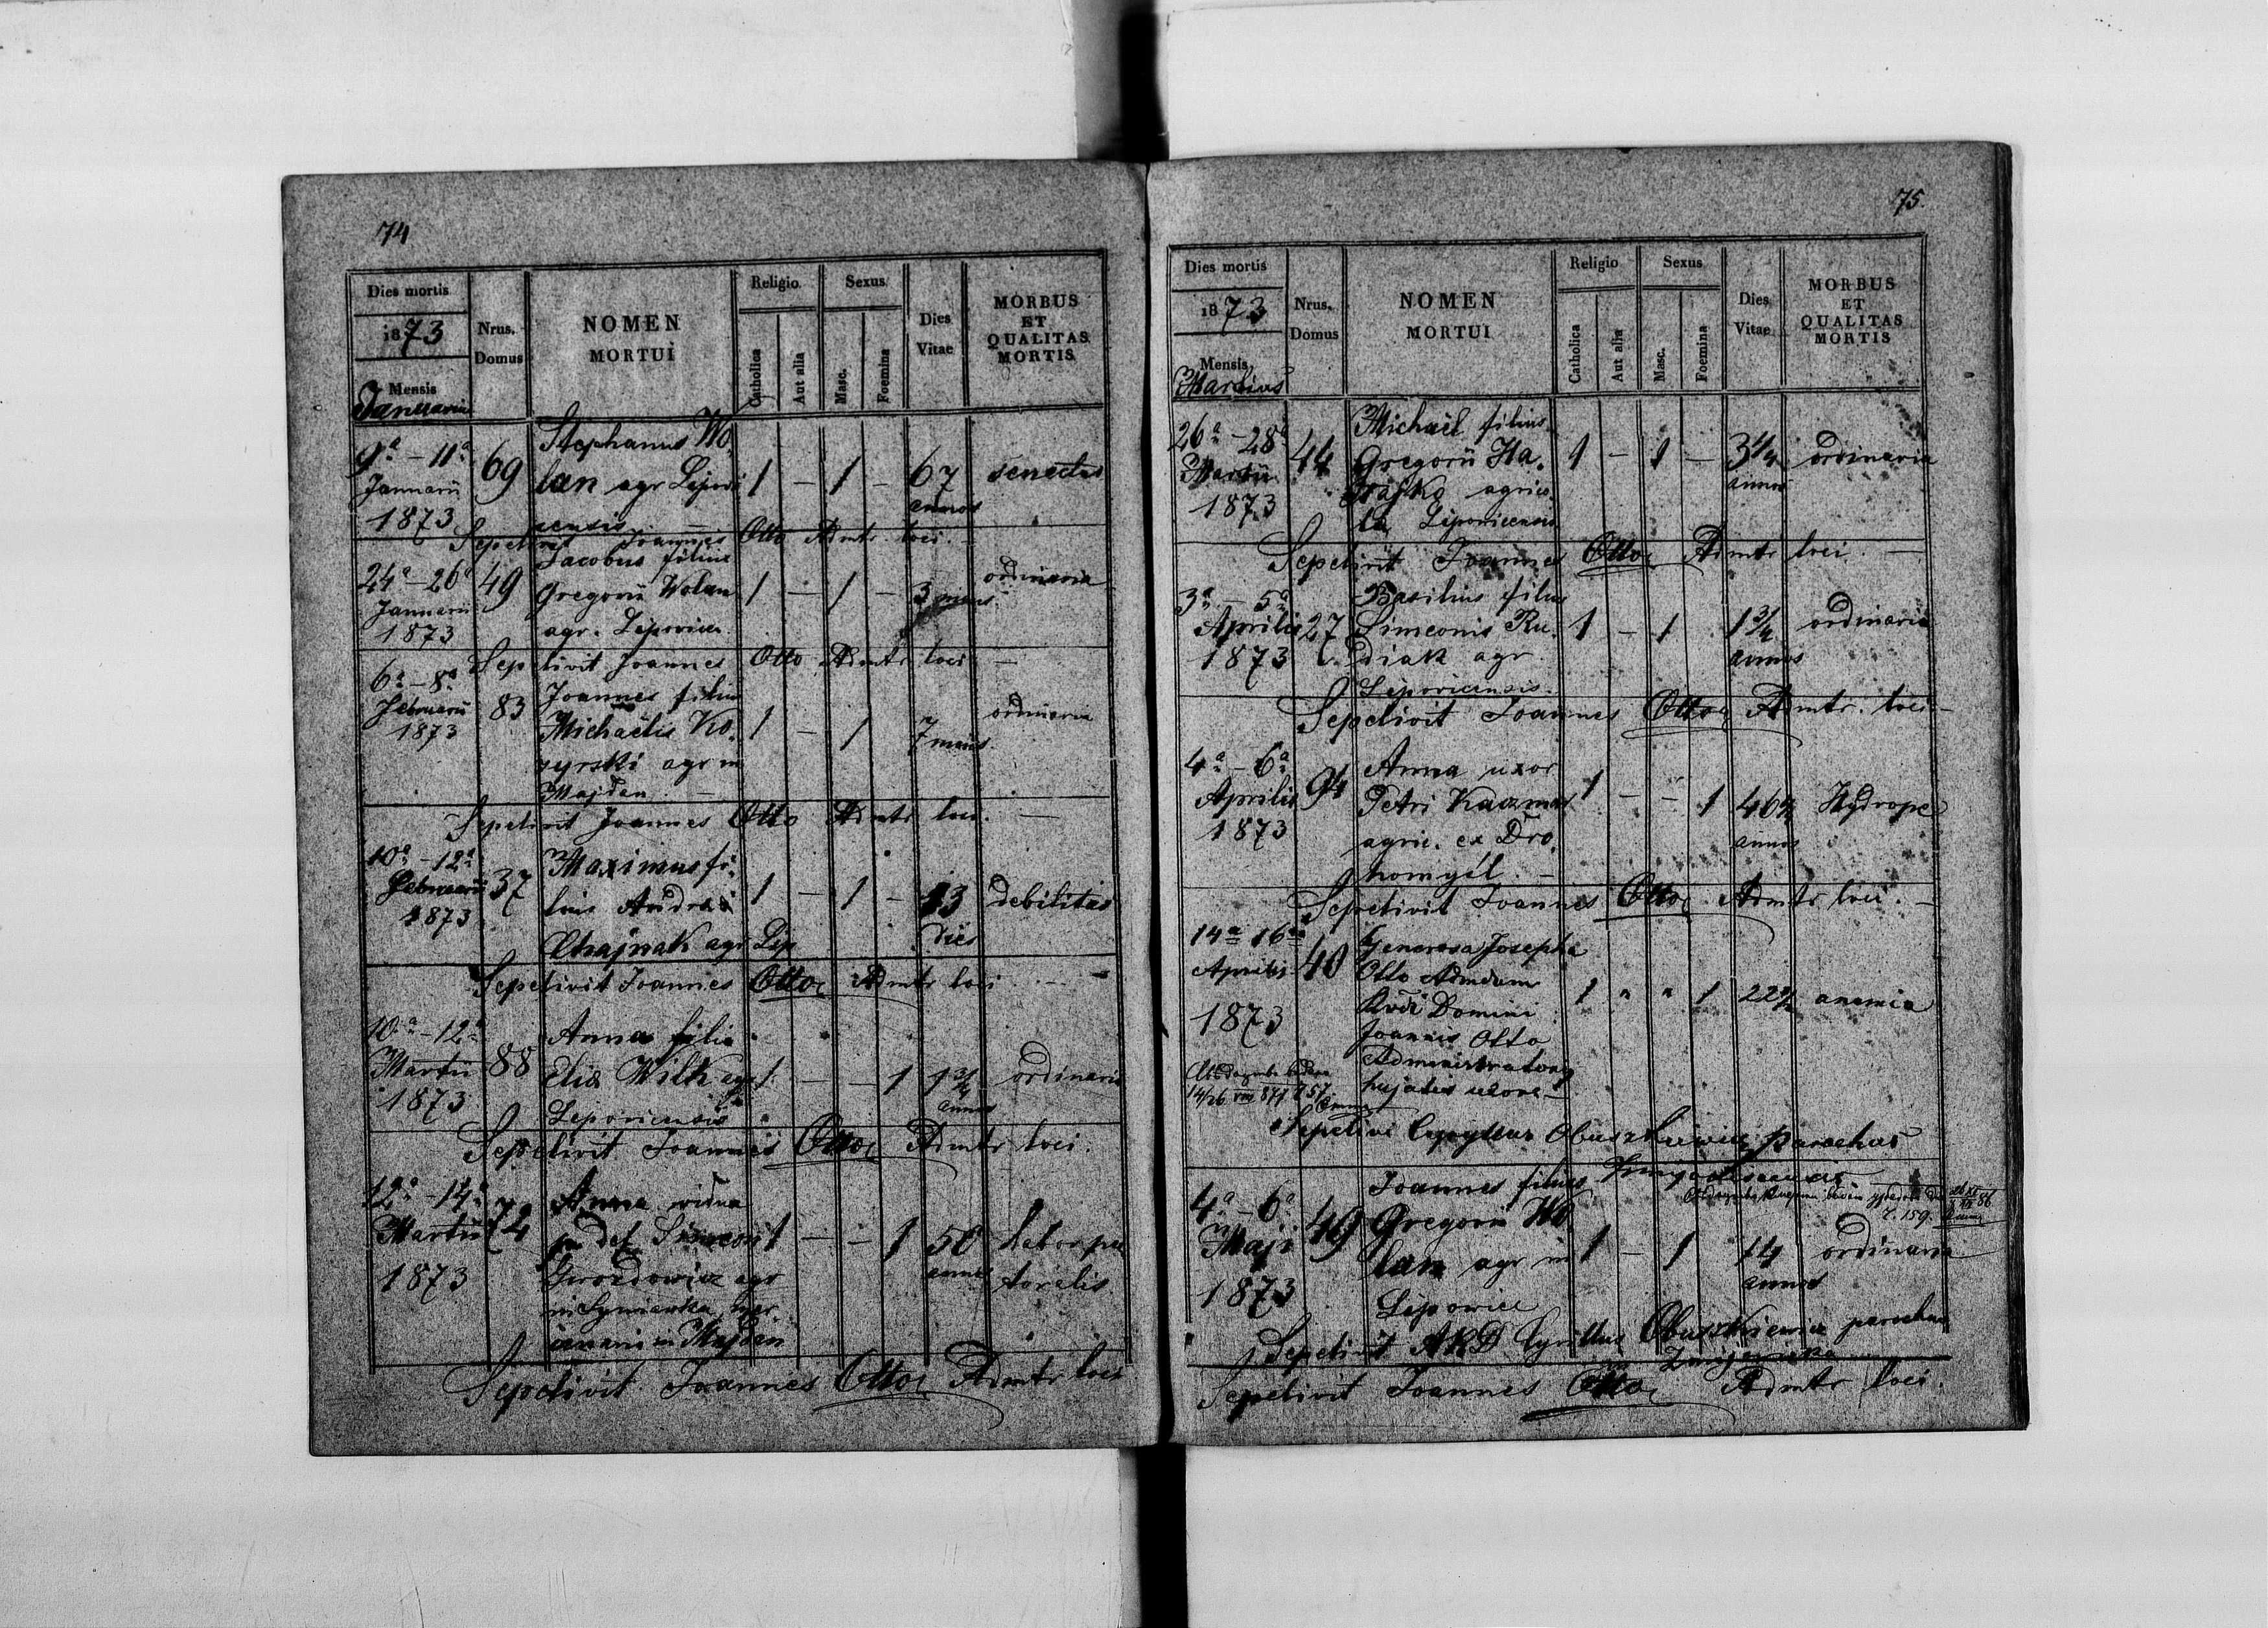 74
Dies mortis
1873
Mensis
Januarius
Nrus. Domus
NOMEN
MORTUI
Religio
Catholica
Aut alia
Sexus
Masc.
Foemina
Dies
Vitae
MORBUS
ET
QUALITAS
MORTIS
9ª – 11ª
Januarii
1873
69
Stephanus Wo-
lan agr Lipowi
censis
1 – 1 –
67
annos
senectus
Sepelivit Joannes Otto Admtr loci.
24ª – 26ª
Januarii
1873
49
Jacobus filius
Gregorii Wolan
agr. Lipovien.
1 – 1 –
3 mens.
ordinaria
Sepelivit Joannes Otto Admtr loci –
6ª – 8ª
Februarii
1873
83
Joannes filius
Michaëlis Ko-
zyrski agr in
Majdan. –
1 – 1
7 mens.
ordinaria
Sepelivit Joannes Otto Admtr loci. –
10ª – 12ª
Februarii
1873
37
Maximus fi-
lius Andreä
Chajnak agr Lip
1 – 1 –
13
dies
debilitas
Sepelivit Joannes Otto Admtr loci
10ª – 12ª
Martii
1873
88
Anna filia
Eliä Wilk agr
Lipovicensis
1 – – 1
1 3/4
annos
ordinaria
Sepelivit Joannes Otto Admtr loci.
12ª – 14ª
Martii
1873
72
Anna vidua
p. def. Simeoni
Gwozdowicz agr
in
in Majdan
1 – – 1
50
annos
Sepelivit Joannes Otto Admtr loci
75.
Dies mortis
1873
Mensis
Martius
Nrus.
Domus
NOMEN
MORTUI
Religio
Catholica
Aut alia
Sexus
Masc.
Foemina
Dies
Vitae
MORBUS
ET
QUALITAS
MORTIS
26ª – 28ª
Martii
1873
44
Michaël filius
Gregorii Ha-
rajko agrico-
la Lipovicensis
1 – 1 –
3 1/4
annos
ordinaria
Sepelivit Joannes Otto Admtr loci. –
3ª – 5ª
Aprilis
1873
27
Basilius filius
Simeonis Ru-
diak agr
Lipovicensis.
1 – 1
1 3/4
annos
ordinaria
Sepelivit Joannes Otto Admtr. loci –
4ª – 6ª
Aprilis
1873
94
Anna uxor
Petri Kaczmar
agric. ex Dro-
homyśl. –
1 – – 1
46 1/2
annos
Hydrope
Sepelivit Joannes Otto Admtr loci. –
14ª 16ª
Aprilis
1873
40
Generosa Josepha
Otto Admodum
Rvdi Domini
Joannis Otto
Administratoris
hujatis uxor –
1 " " 1
22 1/2
anemia
Sepelivi Cyryllus Obuszkiewicz parochus
4ª – 6ª
Maji
1873
49
Joannes filius
Gregorii Wo
lan agr in
Lipowice
1 – 1
14
annos
ordinaria
Sepelivit ARD Cyrillus Obuszkiewicz parochus
Sepelivit Joannes Otto Admtr loci.